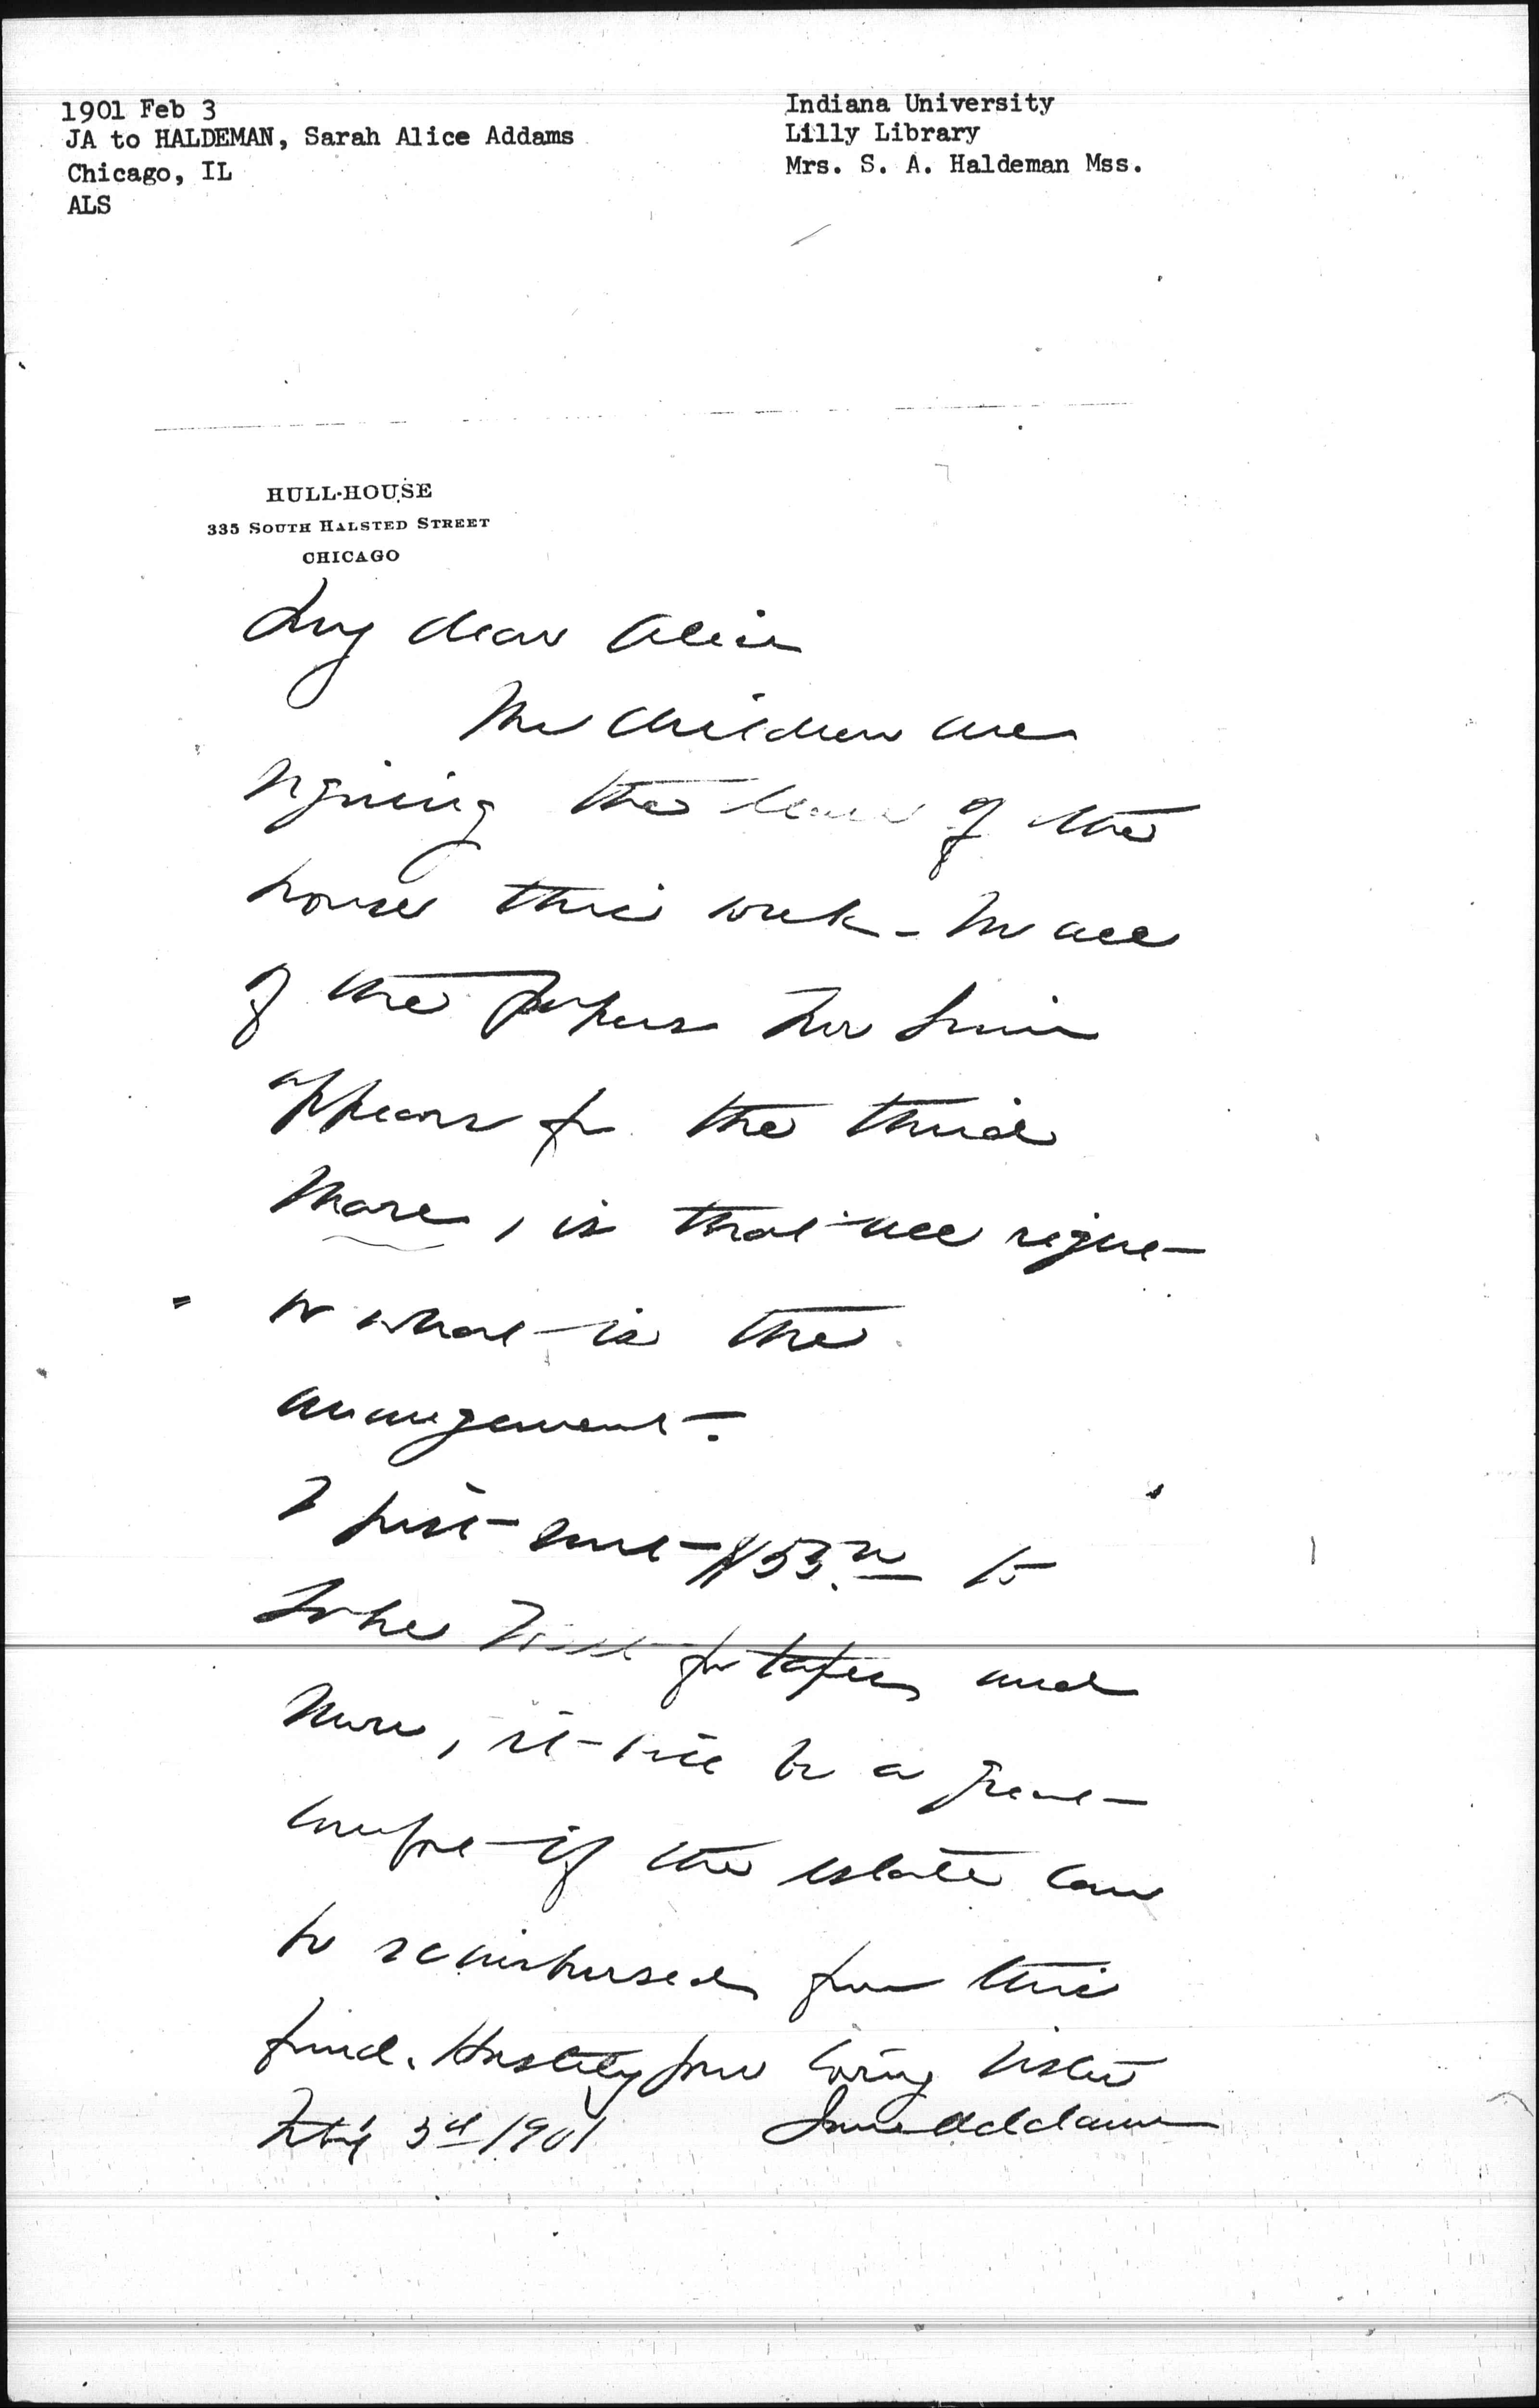 1901 Feb 3
JA to HALDEMAN, Sarah Alice Addams
Chicago, IL
ALS
Indiana University
Lilly Library
Mrs. S. A. Haldeman Mss.
HULL-HOUSE
335 SOUTH HALSTED STREET
CHICAGO
My dear Alice
The children are
signing the lease of the
house this week - In all
of the papers
appears for the third
share, is that all right
or what is the
arrangement.
I just sent $53.00 to
for taxes and
more, it will be a great
comfort if the estate can
be reimbursed from this
fund. Hastily your loving sister
Feb'y 3d 1901 Jane Addams